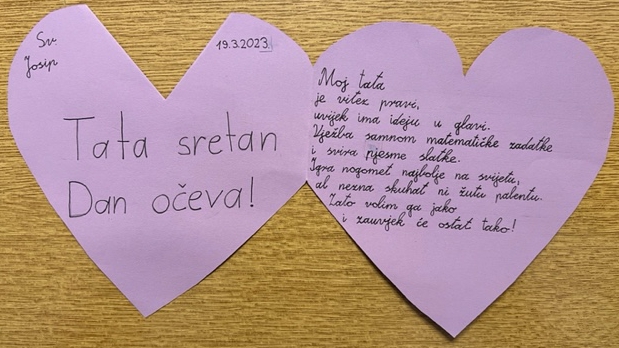 Sv
Josip
19.3.2023.
Tata sretan
Dan očeva!
Moj tata
je vitez pravi,
uvijek ima ideju u glavi.
Vježba samnom matematičke zadatke
i svira pjesme slatke.
Igra nogomet najbolje na svijetu,
al nezna skuhat ni žutu palentu.
Zato volim ga jako
i zauvjek će ostat tako!